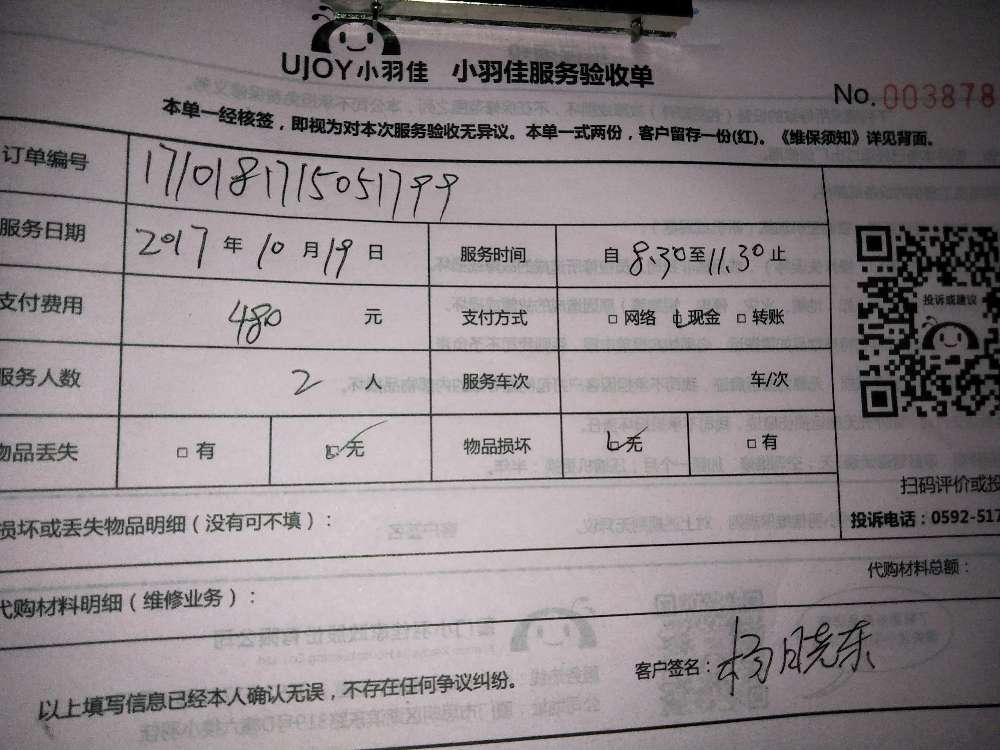 UJOY小羽佳 小羽佳服务验收单
No. 003878
本单一经核签，即视为对本次服务验收无异议。本单一式两份，客户留存一份(红)。《维保须知》详见背面。
订单编号 171018171505179９
服务日期 2017 年 10 月 19 日 服务时间 自 8.30 至 11.30 止
投诉或建议
支付费用 480 元 支付方式 □ 网络 □ 现金 □ 转账
服务人数 2 人 服务车次 车/次
物品丢失 □ 有 □ 无 物品损坏 □ 无 □ 有
扫码评价或投
损坏或丢失物品明细（没有可不填）：
投诉电话：0592-517
代购材料总额：
代购材料明细（维修业务）：
客户签名：杨晓东
以上填写信息已经本人确认无误，不存在任何争议纠纷。